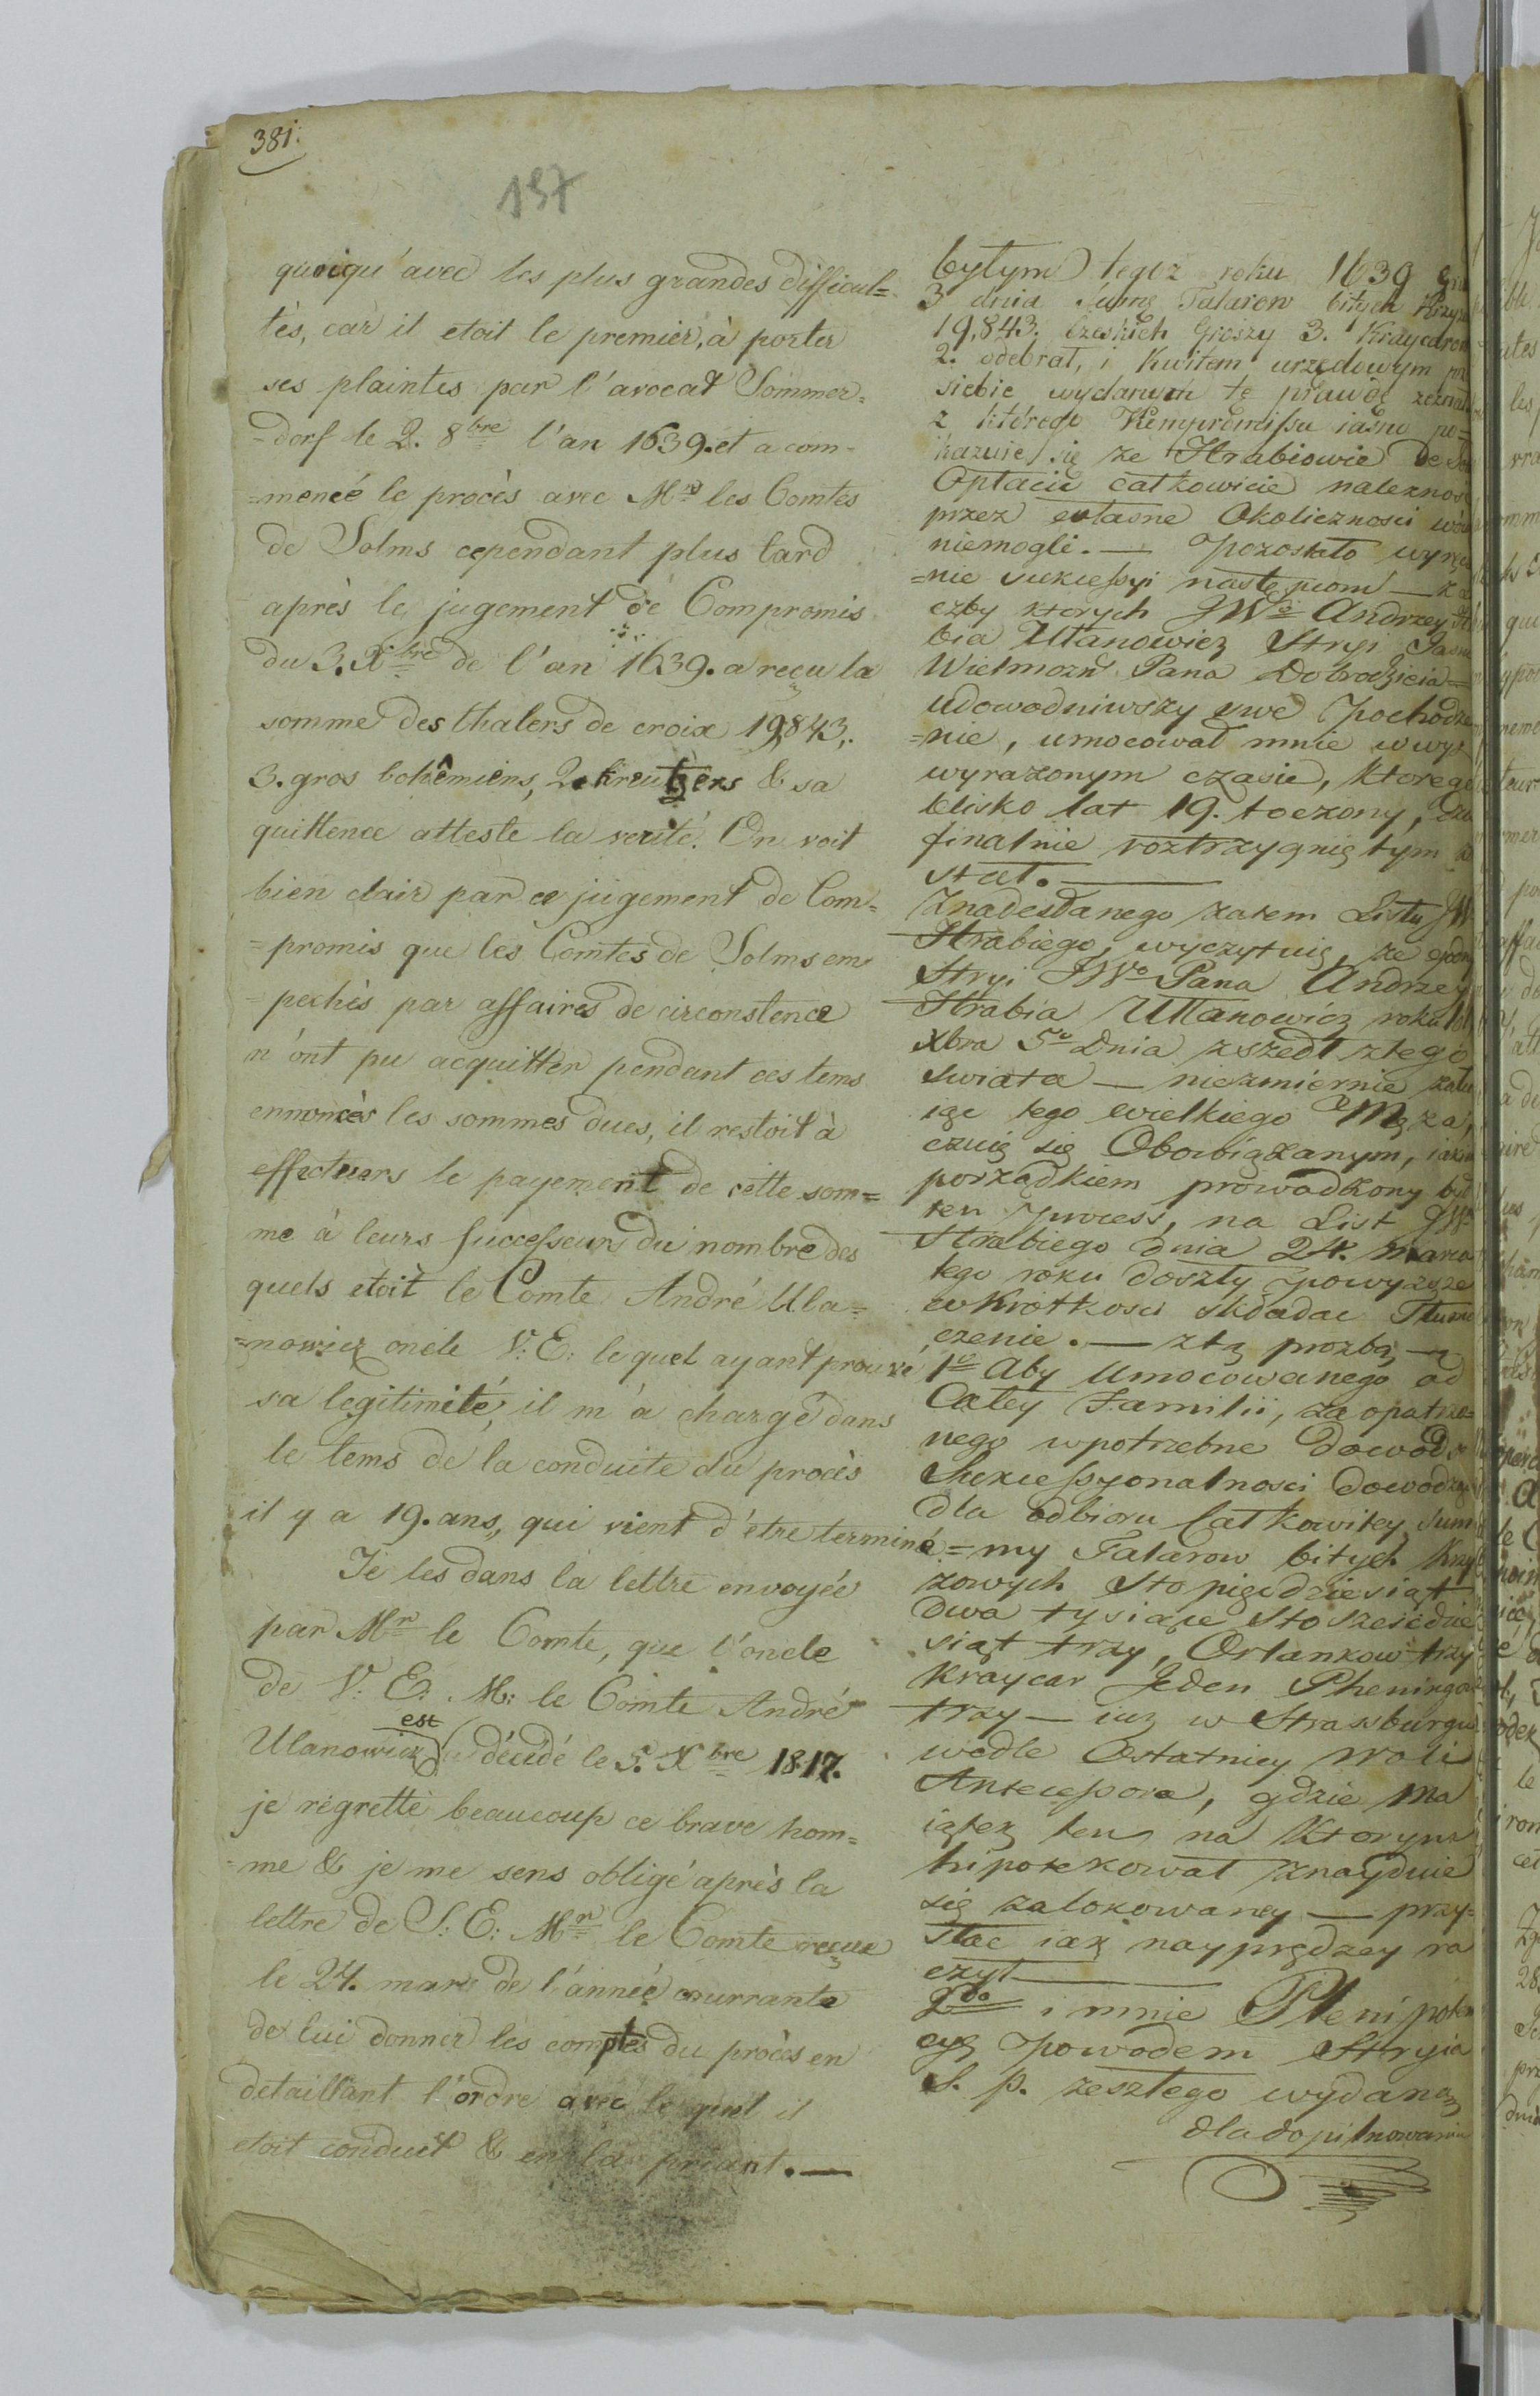 381.
157
quoiqu'avec les plus grandes difficul=
tès, car il etoit le premier, à porter
ses plaintes par l'avocat Sommer=
=dorf le 2. 8bre l'an 1639. et a com-
=mencé le procès avec Mrs les Comtes
de Solms cependant plus tard
après le jugement de Compromis
du 3. Xbre de l'an 1639. a reçu la
somme des thalers de croix 19,843,.
3. gros bohêmiens, 2. kreutzers & sa
quittence atteste la verité. On voit
bien clair par ce jugement de Com=
=promis que les Comtes de Solms em
=pechès par affaires de circonstence
n'ont pu acquitter pendant ces tems
ennoncès les sommes dues, il restoit à
effectuers le payement de cette som=
me à leurs successeurs du nombre des
quels etoit le Comte André Ula=
=nowicz oncle V: E: le quel ayant prouvé
sa legitimité, il m'a chargé dans
le tems de la conduite du procès
il y a 19. ans, qui vient d'être terminé
Je les dans la lettre envoyée
par Mr le Comte, que l'oncle
de V: E: M: le Comte André
est
Ulanowicz décidé le 5. Xbre 1817.
je regrette beaucoup ce brave hom=
=me & je me sens obligé après la
lettre de S: E: Mr le Comte reçue
le 24. mars de l'année courrante
de lui donner les comptes du procès en
detaillant l'ordre avec le quel il
etoit conduit & en la priant.—
bytym tegoz roku 1639
3 dnia Sumę Talarow bitych
19,843. Czeskich Groszy 3. Kraycarow
2. odebrał, i Kwitem urzędowym
siebie wydanem tę prawdę
z którego Kompromissu iasno po=
kazuie się ze Hrabiowie De
Optacić całkowicie nalezność
przez własne Okoliczności
niemogli.— Pozostało
=nie sukcessyi następcom —
czby ktorych JWo Andrzey
bia Ulanowicz Stryi
Wielmozn Pana Dobrodzieia=
udowodniwszy swe Pochodze
=nie, umocował mnie w
wyrazonym czasie, ktorego
blisko lat 19. toczony,
finalnie roztrzygniętym
stał.—
Znadesłanego zatem Listu JW
Hrabiego, wyczytuię, ze
Stryi JWo Pana Andrzey
Hrabia Ullanowicz roku
Xbra 5o Dnia zszedł ztego
swiata — niezmiernie
iąc tego wielkiego Męza,
czuię się Obowiązanym,
porządkiem prowadzony był
ten process, na List JWo
Hrabiego dnia 24. marca
tego roku doszły powyzsze
w Krotkosci składac Tłuma
czenie.— ztą prozbą —
1o Aby Umocowanego od
Całey Familii, zaopatrzo=
nego wpotrzebne Dowody
Sukcessyonalnosci dowodzące
dla odbioru Całkowitey Sum
=my Talarow bitych Krzy
zowych Sto pięcdziesiąt
dwa tysiące Sto szescdzie
siąt trzy, Orlankow trzy
Kraycar Jeden Phenings
trzy — iuz w Strasburgu
wedle Ostatniey woli
Antecessora, gdzie Ma
iątek ten na Ktorym
hipotekował znayduie
się zalokowaney — przy=
słac iak nayprędzey ra
czył—
2do i mnie Plenipoten
cyą powodem Stryia
S. p. zeszłego wydaną
dla dopilnowania